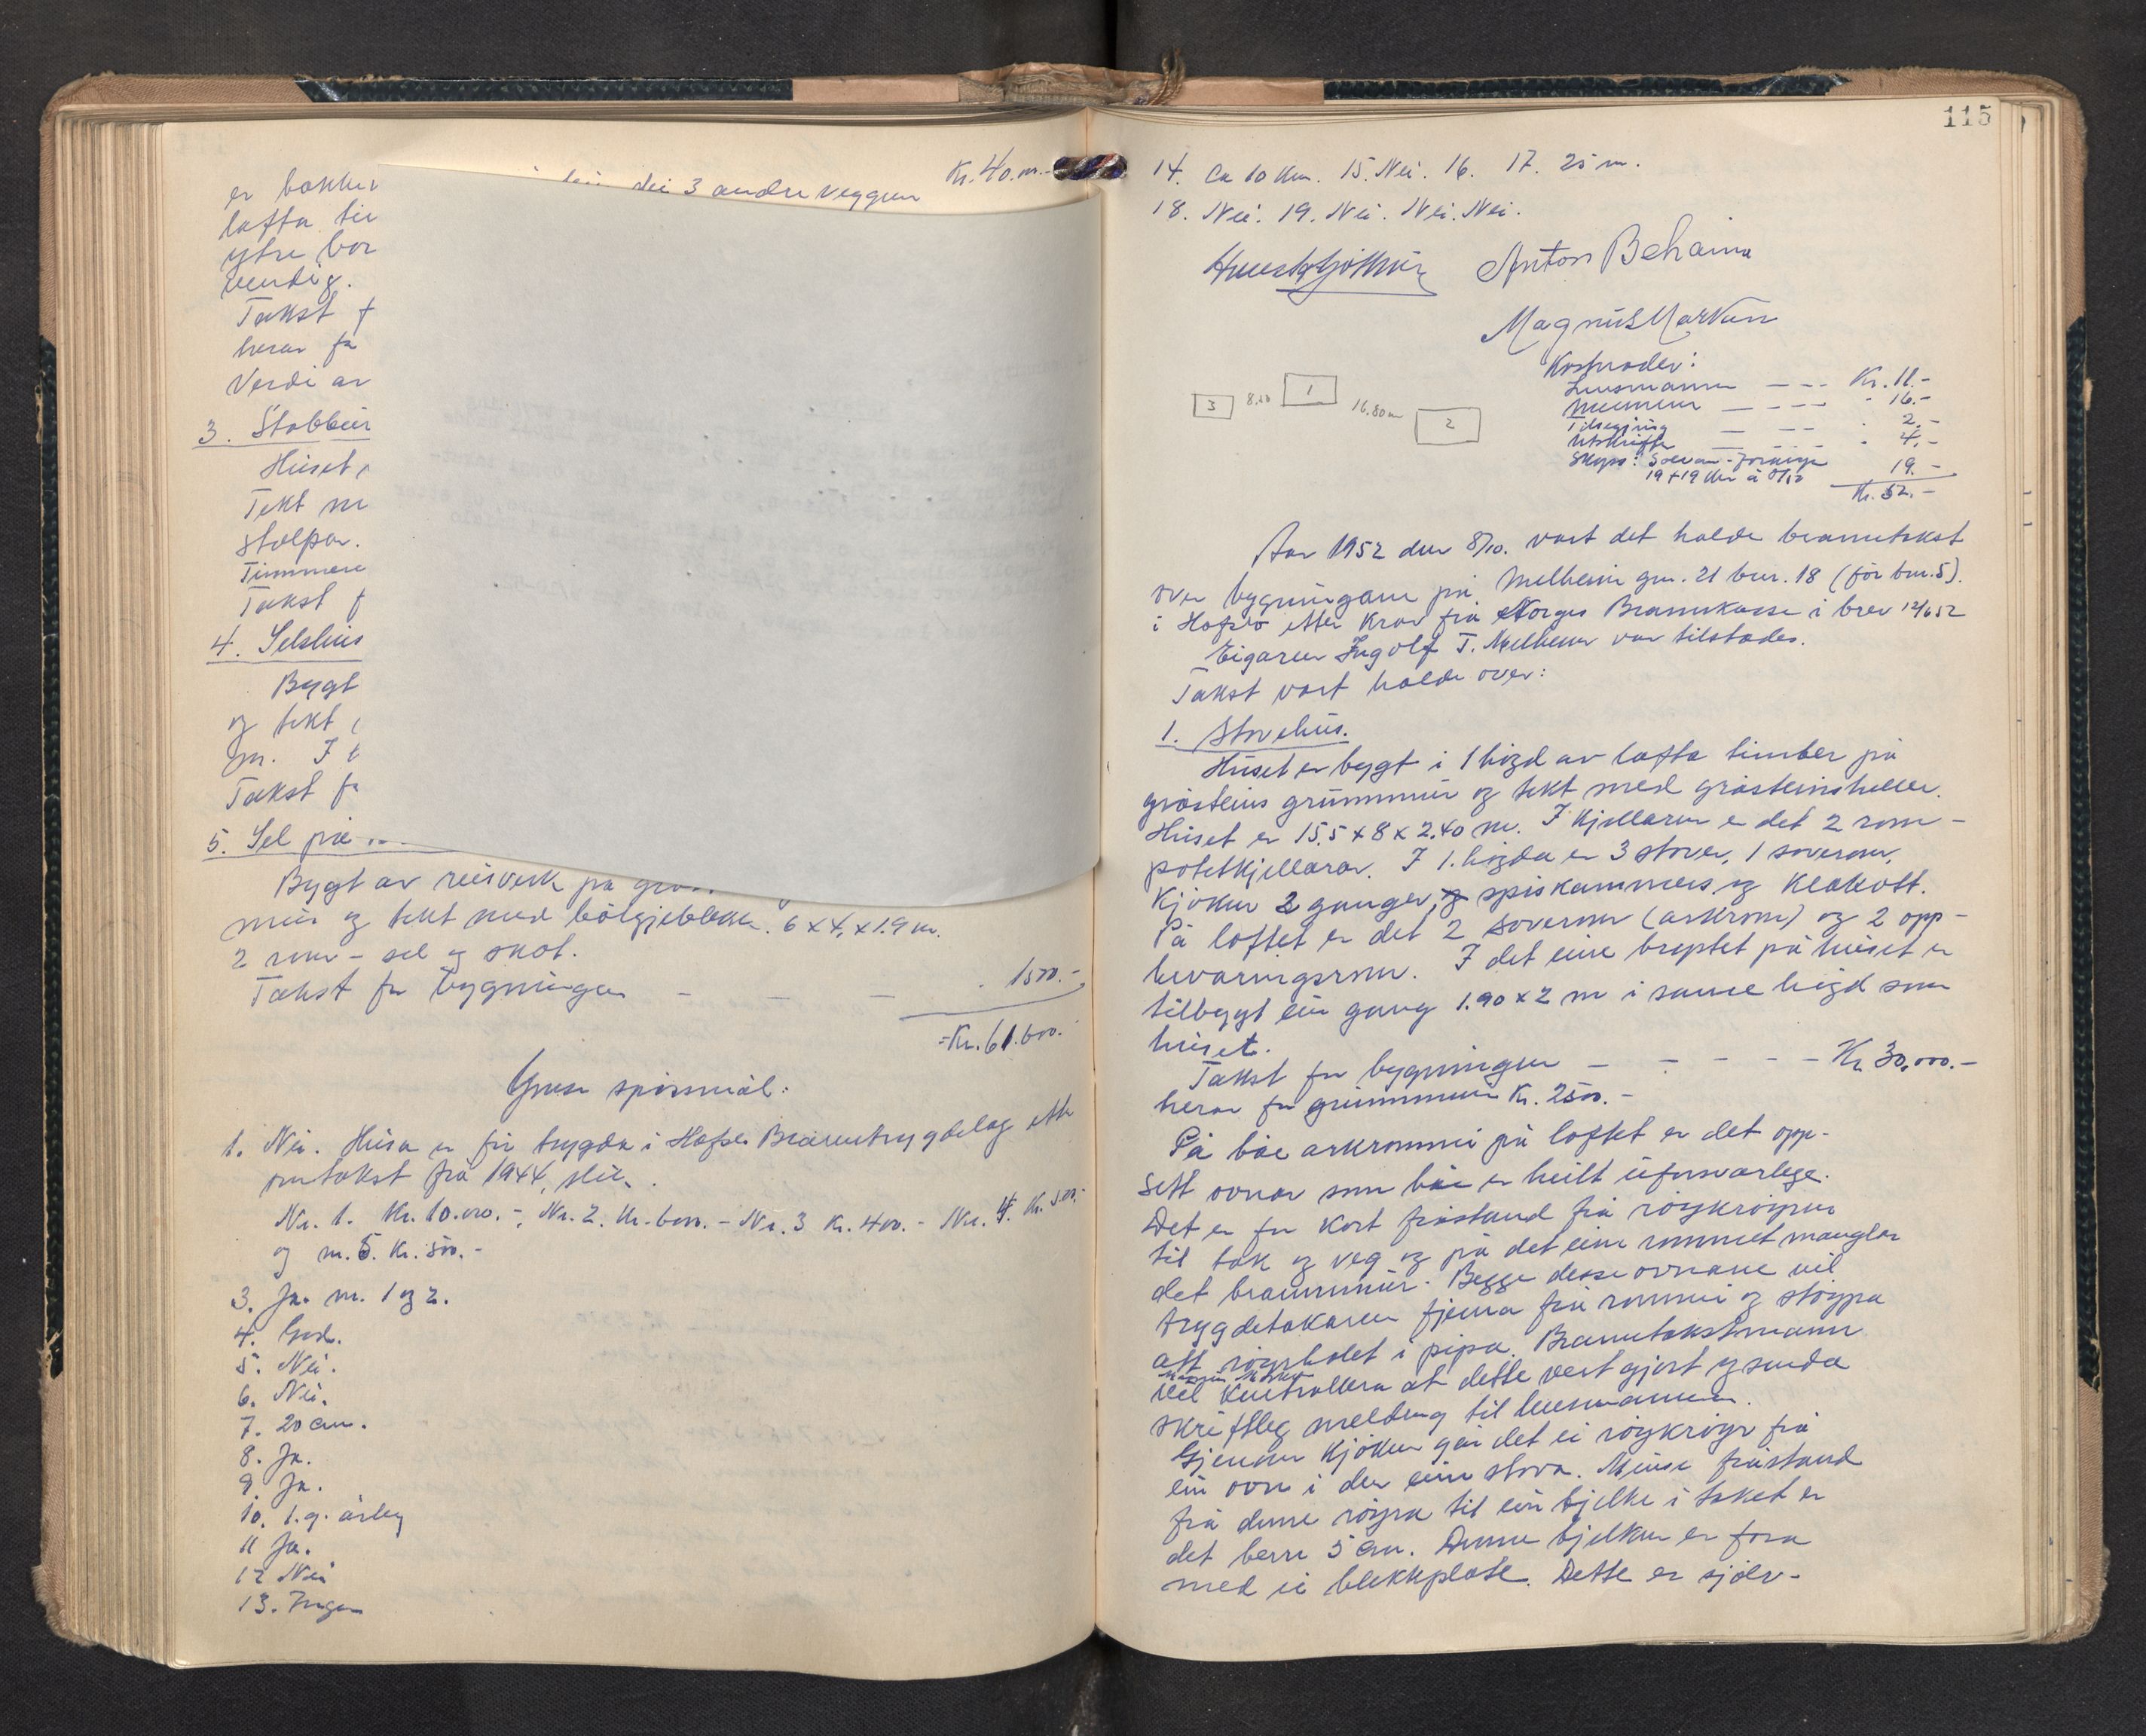 er bakker
dei 3 andre veggen Kr. 40.000.-
lafta tir
ytre bor
vendig.
Takst f
herav fo
Verdi av
3. Stabbur
Huset
Tekt m
stolpar.
Timmere
Takst f
4. Selshus
Bygt
og tekt
m. I
Takst fo
5. Sel på
Bygt av reisverk på
mur og tekt med bölgjeblekk. 6 x 4 x 1.9 m.
2 rom - sel og skot.
Takst for bygningen - - - 1500.-
Kr. 61.600.-
Ymse spörsmål:
1. Nei. Husa er för trygda i Hafslo Branntrygdelag etter
omtakst frå 1944, slik.
Nr. 1. Kr. 10.000.-, Nr. 2. Kr. 6000.- Nr. 3 Kr. 400.- Nr. 4. Kr. 500.-
og nr. 5. Kr. 500.-
3. Ja. nr. 1 og 2.
4. God.
5. Nei.
6. Nei.
7. 20 cm.
8. Ja.
9. Ja.
10. 1.g. årleg
11 Ja.
12 Nei
13. Ingen
115
14. Ca 10 km. 15. Nei. 16. 17. 25 m.
18. Nei. 19. Nei. Nei. Nei.
Anton Beheim
Magnus Markun
3 8.20 1 16.80 m 2
Kostnader:
Lensmannen - - - Kr. 11.-
Mennene - - - - " 16.-
Tilsegjing - - - " 2.-
Utskrifter - - - " 4.-
Skyss: 19.-
19+19 km à 0/50
Kr. 52.-
Aar 1952 den 8/10. vart det halde branntakst
over bygningane på Melheim gnr. 21 bnr. 18 (för bnr. 5).
i Hafslo etter krav frå Norges Brannkasse i brev 12/6 52
Eigaren Ingolf T. Melheim var tilstades.
Takst vart halde over:
1. Stovehus.
Huset er bygt i 1 högd av lafta timber på
gråsteins grunnmur og tekt med gråsteinsheller.
Huset er 15.5 x 8 x 2.40 m. I kjellaren er det 2 rom -
potetkjellarar. I 1. högda er 3 stover, 1 soverom,
kjöken 2 ganger, spiskammers og klakott.
På loftet er det 2 soverom (arkrom) og 2 opp-
bevaringsrom. I det eine breptet på huset er
tilbygt ein gang 1.90 x 2 m i same högd som
huset.
Takst for bygningen - - - - - Kr. 30.000.-
herav for grunnmuren Kr. 2500.-
På båe arkrommi på loftet er det opp-
sett ovnar som båe er heilt uforsvarlege.
Det er for kort fråstand frå röykröyren
til tak og veg og på det eine rommet manglar
det brannmur. Begge desse ovnane vil
trygdetakaren fjerna frå rommi og stöypa
att röyrholet i pipa. Branntakstmann
vil kontrollera at dette vert gjort og senda
skriftleg melding til lensmannen.
Gjenom kjöken går det ei röykröyr frå
ein ovn i den eine stova. Minse fråstand
frå denne röyra til ein bjelke i taket er
det berre 5 cm. Denne bjelken er fora
med ei blekkplate. Dette er sjölv-